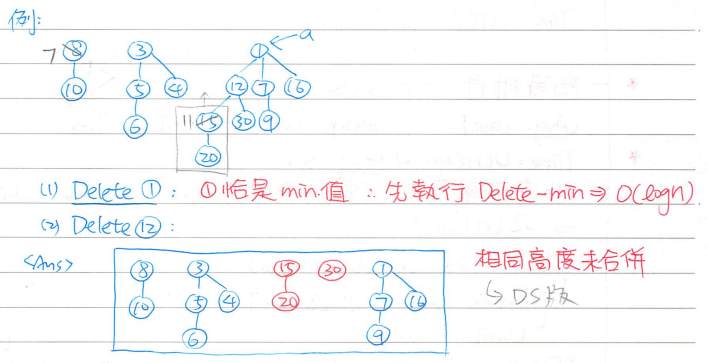 例:
7 8 3 1 ← a
10 5 4 12 7 16
6 11 15 30 9
20
(1) Delete ①: ①恰是min.值 ∴先執行 Delete-min ⇒ O(logn)
(2) Delete ⑫:
<Ans> 8 3 15 30 1 相同高度未合併
10 5 4 20 7 16 ↳ DS版
6 9